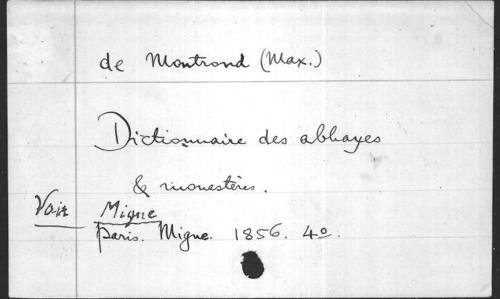 de Montrond (Max.)
Dictionnaire des abbayes
& monastères.
Voir Migne
Paris. Migne. 1856. 4o.